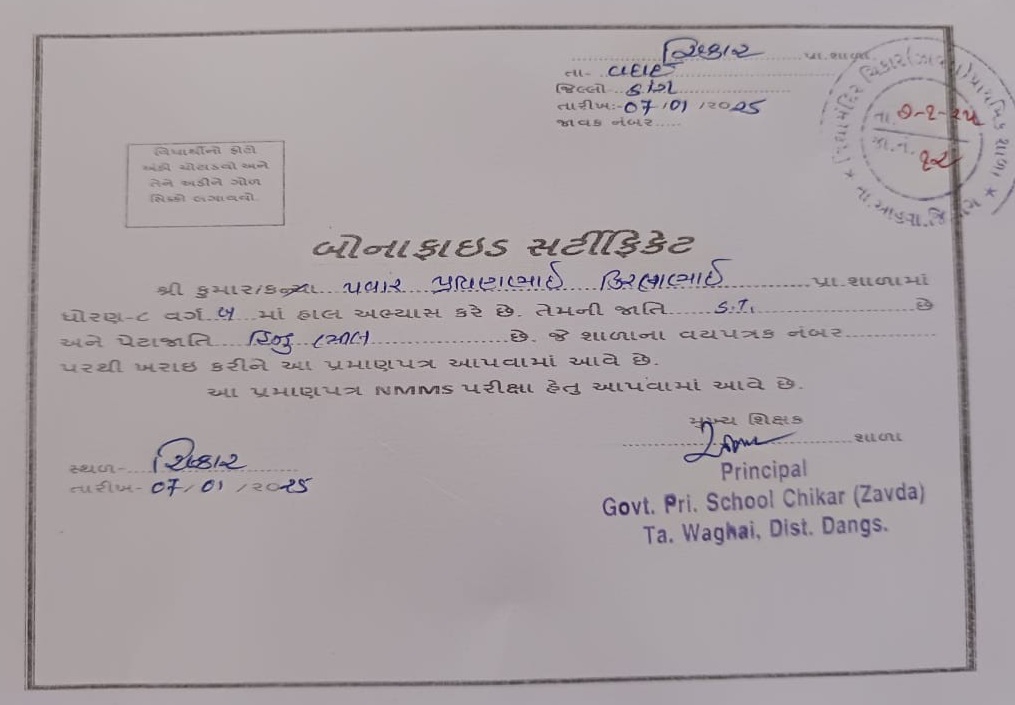 ચિકાર પ્રા.શાળા
તા- વઘઈ
જિલ્લો ડાંગ
તારીખ:-07/01/2025
જાવક નંબર
તા. ૭-૧-૨૫
જા.નં. ૧૨
વિધાર્થીનો ફોટો
અંહી ચોટાડવો અને
તેને અડીને ગોળ
સિક્કો લગાવવો.
બોનાફાઇડ સર્ટીફિકેટ
શ્રી કુમાર/કન્યા પવાર પ્રવિણભાઈ પ્રા.શાળામાં
ધોરણ-૮ વર્ગ બ માં હાલ અભ્યાસ કરે છે. તેમની જાતિ S.T. છે
અને પેટાજાતિ હિન્દુ ભીલ છે. જે શાળાના વયપત્રક નંબર
પરથી ખરાઇ કરીને આ પ્રમાણપત્ર આપવામાં આવે છે.
આ પ્રમાણપત્ર NMMS પરીક્ષા હેતુ આપવામાં આવે છે.
મુખ્ય શિક્ષક
શાળા
સ્થળ- ચિકાર
તારીખ- 07/01/2025
Principal
Govt. Pri. School Chikar (Zavda)
Ta. Waghai, Dist. Dangs.